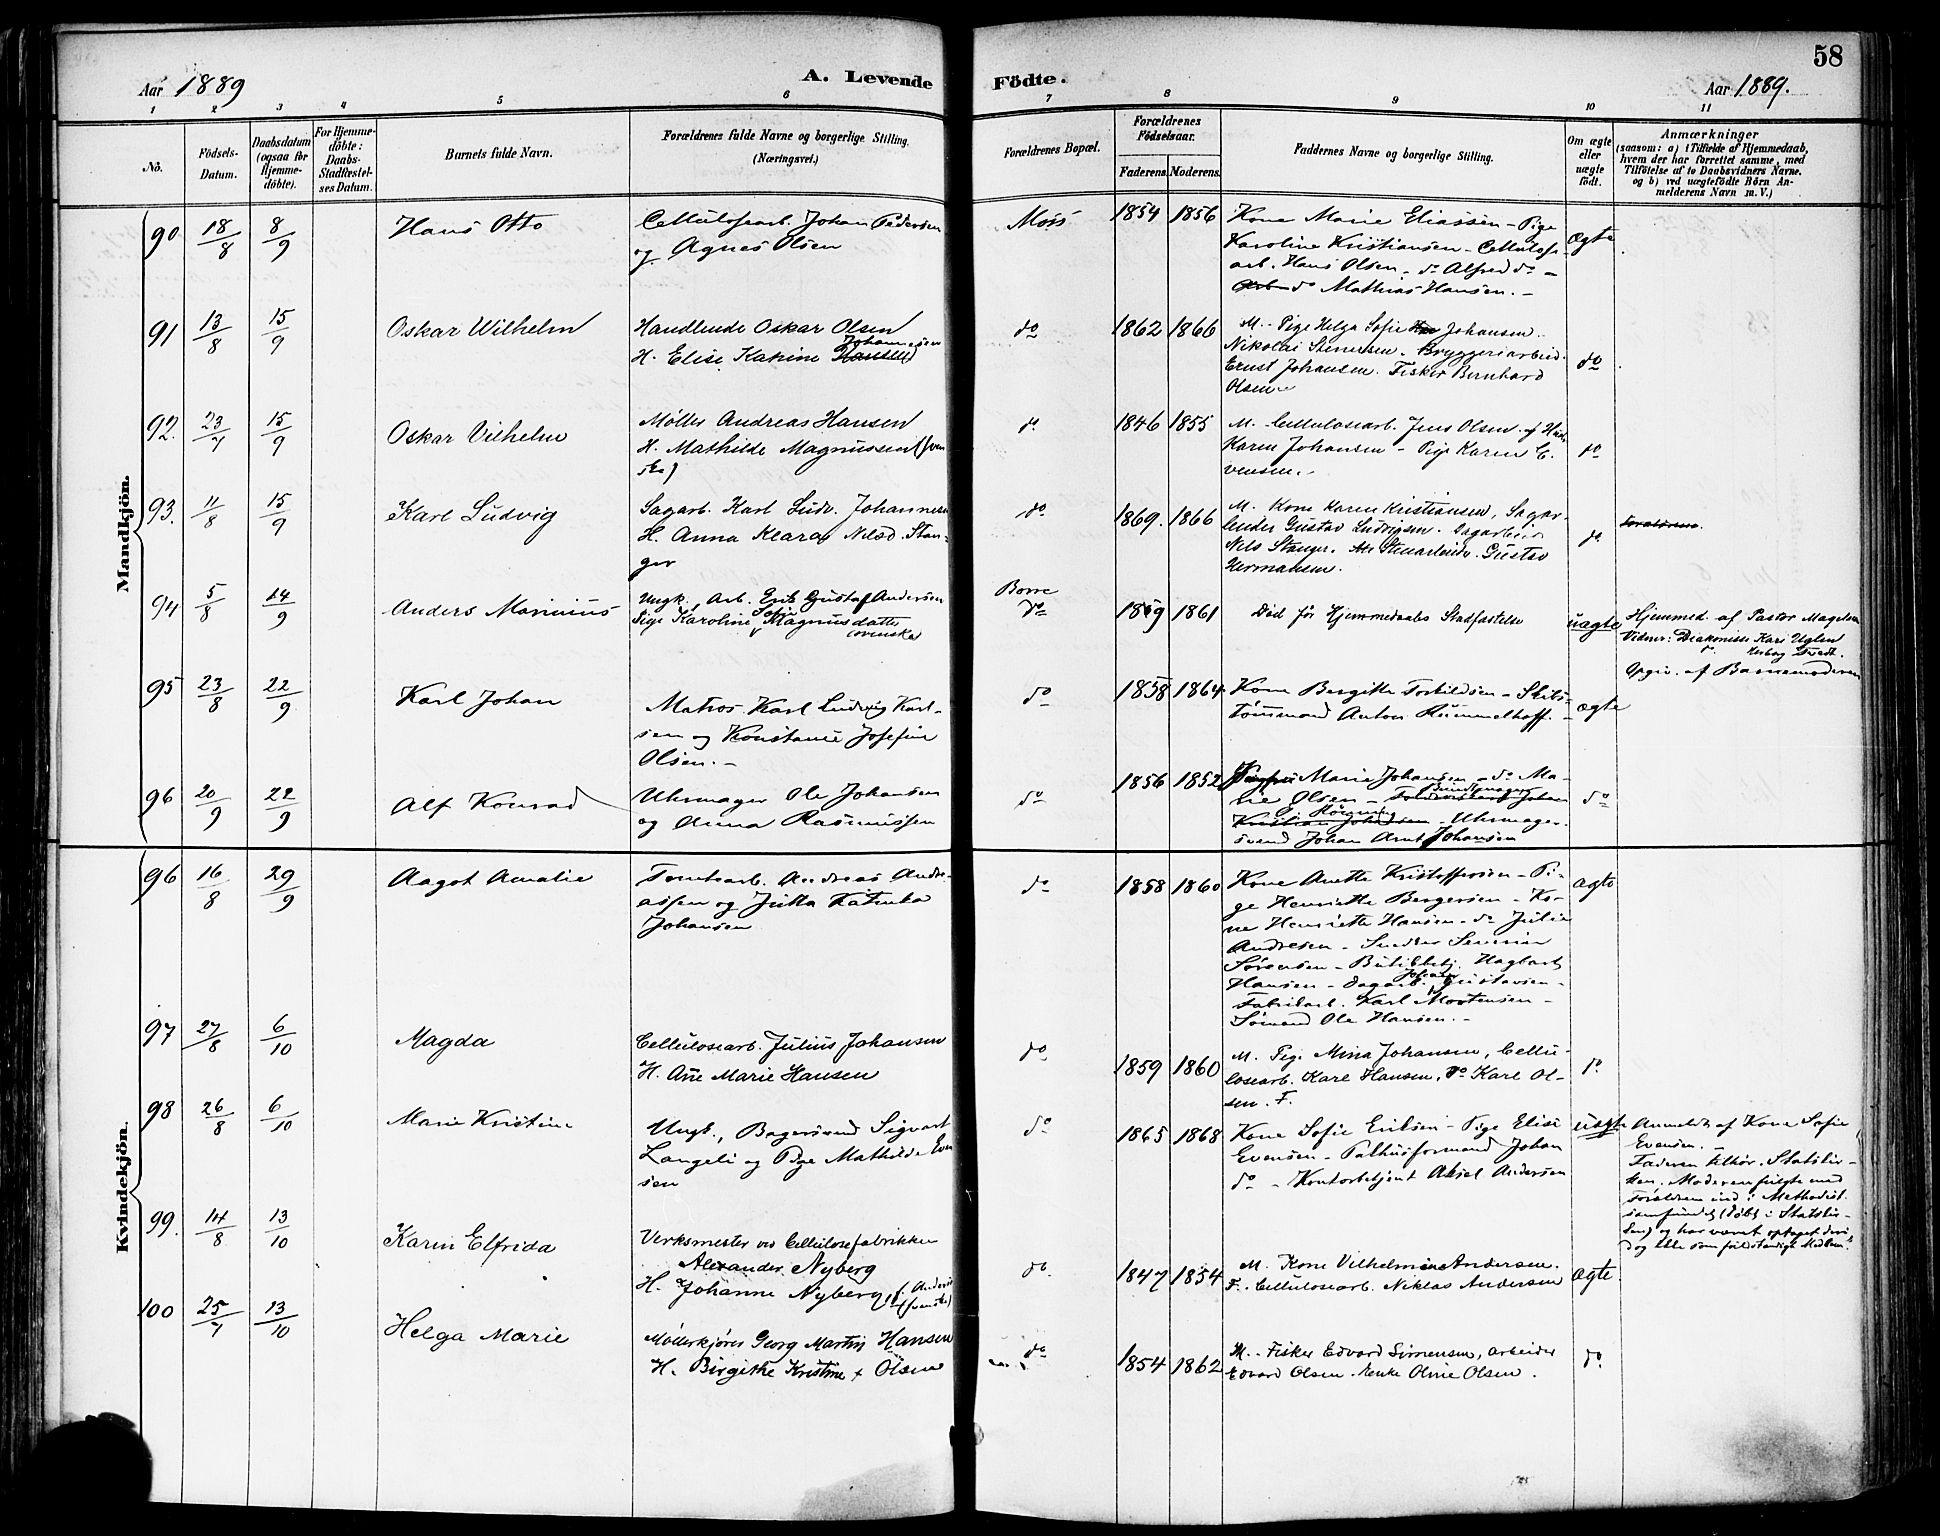 58
Aar 1889
A. Levende Födte.
Aar 1889.
1 2 3 4 5 6 7 8 9 10 11
No.
Födsels-Datum.
Daabsdatum (ogsaa for Hjemme-döbte).
For Hjemme-döbte: Daabs-Stadfæstel-ses Datum.
Barnets fulde Navn.
Forældrenes fulde Navne og borgerlige Stilling.
(Næringsvei.)
Forældrenes Bopæl.
Forældrenes Födselsaar.
Faderens. Moderens.
Faddernes Navne og borgerlige Stilling.
Om ægte eller uægte født.
Anmærkninger
(saasom: a) i Tilfælde af Hjemmedaab,
hvem der har forrettet samme, med
Tilföielse af to Daabsvidners Navne.
og b) ved uægtefödte Börn An-
melderens Navn m. V.)
Mandkjön.
90 18/8 8/9 Hans Otto
Cellulosearb. Johan Pedersen
og Agnes Olsen
Moss 1854 1856
Kone Marie Eliassen – Pige
Karoline Kristiansen – Cellulose-
arb. Hans Olsen – do Alfred do –
do Mathias Hansen. –
Ægte
91 13/8 15/9 Oskar Wilhelm
Handlende Oskar Olsen
H. Elise Katrine Johannesen
do 1862 1866
M. Pige Helga Sofie Johansen.
Nikolai Stenersen. Bryggeriarbeid.
Ernst Johansen. Fisker Bernhard
Olsen
do
92. 23/7 15/9 Oskar Vilhelm
Møller Andreas Hansen
H. Mathilde Magnussen (sven
ske)
do 1846 1855
M. Cellulosearb. Jens Olsen
Karen Johansen – Pige Karen E.
vensen.
do
93. 11/8 15/9 Karl Ludvig
Sagarb. Karl Ludv. Johannesen
H. Anna Klara Nilsd. Stan-
ger
do 1869. 1866
M. Kone Karen Kristiansen, Sagar-
beider Gustav Ludvigsen. Sagarbeid
Nils Stanger. Stenarbeider Gustav
Hermansen.
do
Forældrene.
94 5/8 14/9 Anders Marinius
Ungk. Arb. Erik Gustaf Andersen
Pige Karoline Sofie Magnusdatter
(svenske)
Borre
do 1859 1861
Død før Hjemmedaabs Stadfæstelse
uægte
Hjemmed. af Pastor Magelsen
Vidner: Diakonisse Kari Uglen
do
Opgiv. af Barnemoderen
95 23/8 22/9 Karl Johan
Matros Karl Ludvig Karl-
sen og Konstance Josefine
Olsen. –
do 1858 1864
Kone Bergitte Torkildsen – Skibs-
tømmermand Anton Rummelhoff. –
ægte
96 20/9 22/9 Alf Konrad
Uhrmager Ole Johansen
og Anna Rasmussen
do 1856 1852
Marie Johansen – do Ma-
rie Olsen – Buntmager
Uhrmager-
svend Johan Arnt Johansen
do
Kvindekjön.
96 16/8 29/9 Aagot Amalie
Tomtearb. Andreas Andre-
assen og Jutta Katinka
Johansen
do 1858 1860
Kone Anette Kristoffersen – Pi-
ge Henriette Bergersen – Ko-
ne Henriette Hansen – do Julie
Andresen – Snedker Severin
Sørensen – Butikbetj. Hagbart
Hansen – Sagarb. Johan Gustavsen –
Fabrikarb. Karl Mortensen –
Sømand Ole Hansen. –
ægte
97 27/8 6/10 Magda
Cellulosearb. Julius Johansen
H. Ane Marie Hansen
do 1859 1860
M. Pige Mina Johansen, Cellu-
losearb. Karl Hansen, do Karl Ol-
sen. F.
do
98 26/8 6/10 Marie Kristine
Ungk., Bagersvend Sigvart
Langeli og Pige Mathilde Even
sen
do 1865 1868
Kone Sofie Eriksen – Pige Elise
Evensen – Palhusformand Johan
do – Kontorbetjent Aksel Andersen
uægte
Anmeldt af Kone Sofie
Evensen.
Faderen tilhør. Statskir-
ken. Moderen fulgte med
Forældrene ind i Methodist
samfundet (døbt i Statskir-
ken) og har været optaget deri
dog ikke som fuldstændigt Medlem.
99. 14/8 13/10 Karin Elfrida
Verksmester ved Cellulosefabrikken
Alexander Nyberg
H. Johanne Nyberg, f. Anders
(svenske)
do 1847 1854
M. Kone Vilhelmine Andersen.
F. Cellulosearb. Niklas Andersen
Ægte
100 25/7 13/10 Helga Marie
Møllerkjører Georg Martin Hansen
H. Birgithe Kristine Olsen
do 1854 1862
M. Fisker Edvard Simensen, arbeider
Edvard Olsen. Enke Oline Olsen.
do